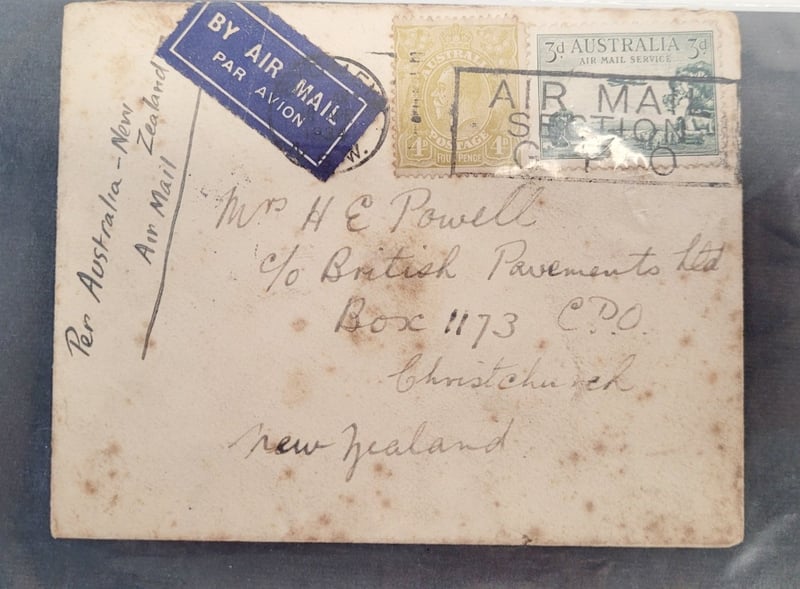 BY AIR MAIL
PAR AVION
AUSTRALIA
POSTAGE
4d 4d
FOUR PENCE
3d AUSTRALIA 3d
AIR MAIL SERVICE
AIR MAIL
SECTION
G.P.O
N.S.W.
Per Australia - New
Zealand
Air Mail
Mrs H E Powell
c/o British Pavements Ltd
Box 1173 C.P.O.
Christchurch
New Zealand